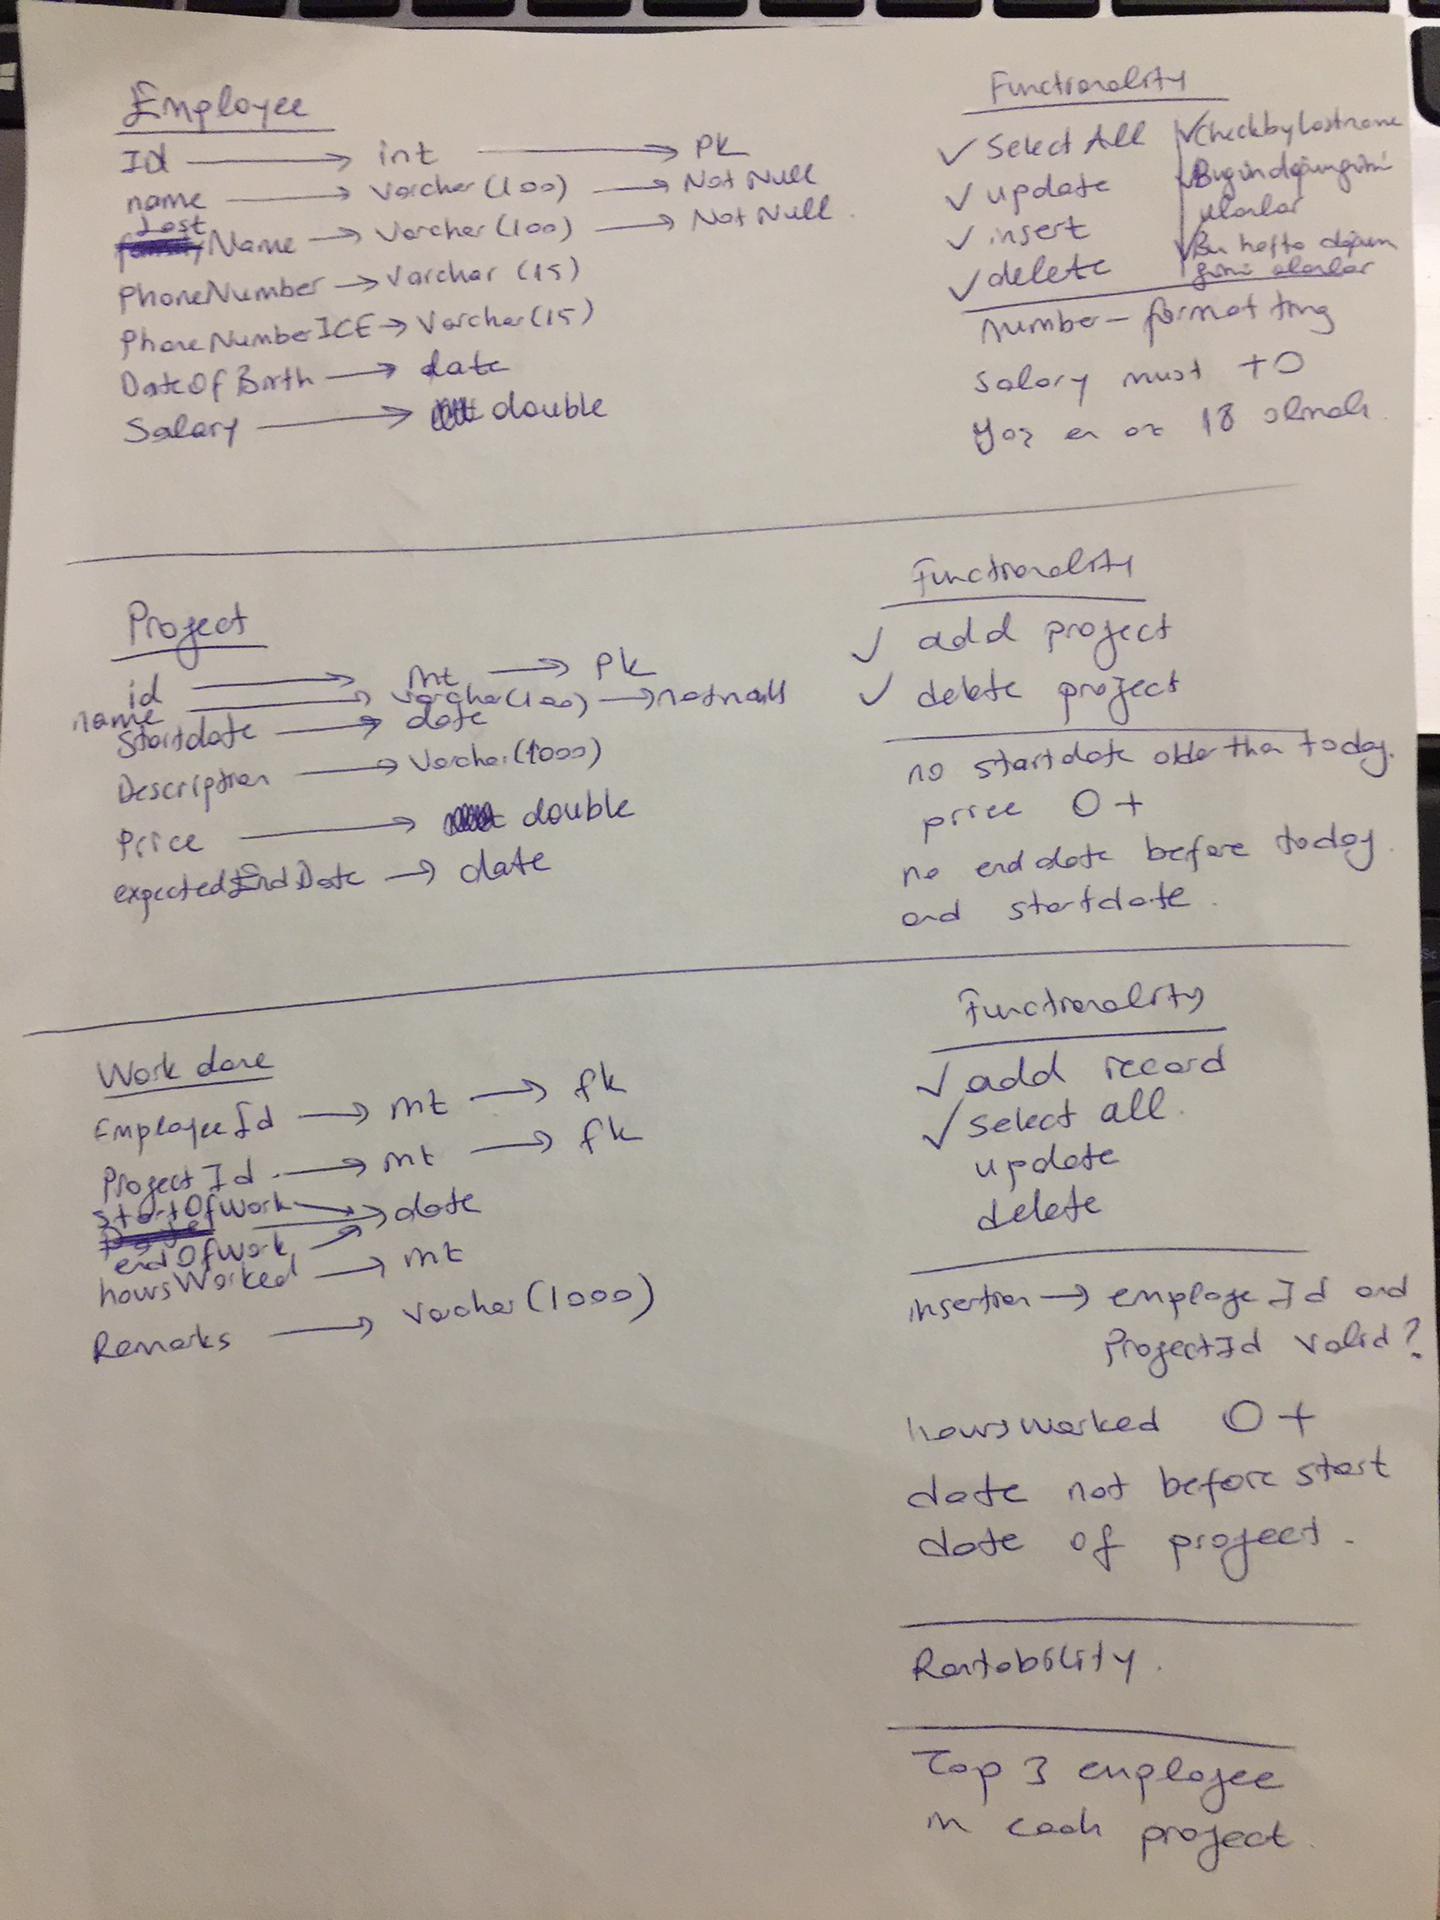 Employee
Id → int → Pk
name → Varchar (100) → Not Null
LastName → Varchar (100) → Not Null
PhoneNumber → Varchar (15)
PhoneNumberICE → Varchar (15)
DateOfBirth → date
Salary → double
Functionality
✓ Select All
✓ update
✓ insert
✓ delete
✓ Checkbylastname
✓ Bugün doğum günü
olanlar
✓ Bu hafta doğum
günü olanlar
number-formatting
Salary must +0
Yaş en az 18 olmalı.
Project
id → int → Pk
name → Varchar(100) → notnull
Startdate → date
Description → Varchar(1000)
Price → double
expectedEndDate → date
Functionality
✓ add project
✓ delete project
no startdate older than today.
price 0+
no enddate before today
and startdate.
Work done
EmployeeId → int → fk
ProjectId → int → fk
StartOfWork → date
endOfWork
hoursWorked → int
Remarks → Varchar (1000)
Functionality
✓ add record
✓ Select all.
update
delete
insertion → employeId and
ProjectId valid?
hoursworked 0+
date not before start
date of project.
Rentability.
Top 3 employee
in each project.